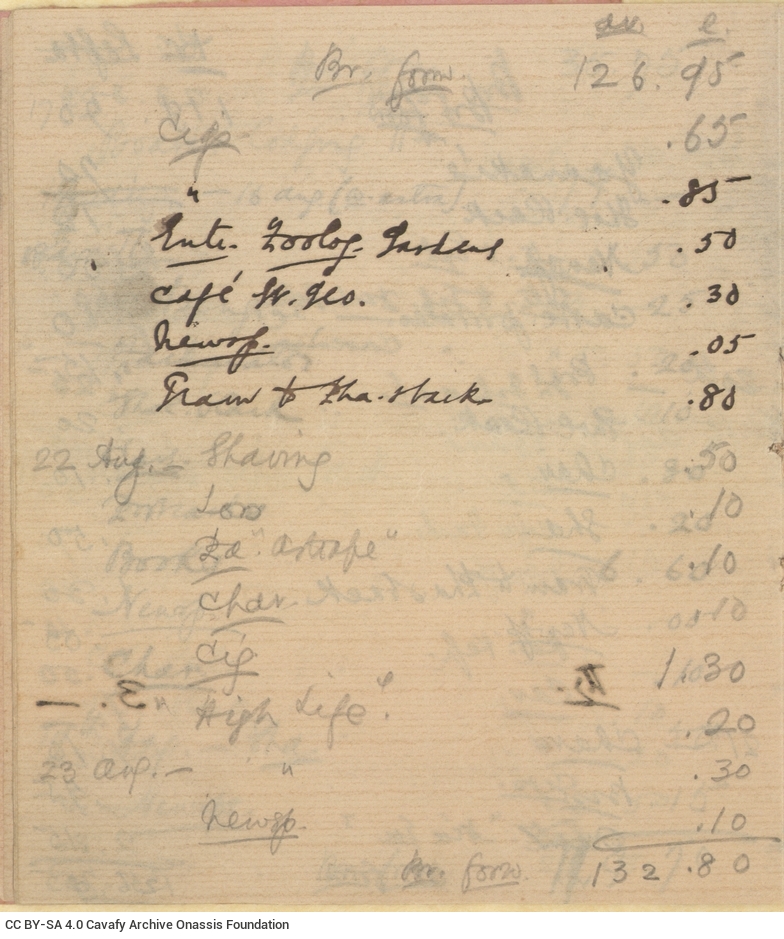 Br. forw. 126.95
Cigs .65
" .85
Entr. Zoolog. Gardens .50
Café St. Geo. .30
Newsp. .05
Tram to Pha. & back .80
22 Aug. — Shaving .50
.10
.10
Char. .10
Cig 1.30
"High Life" .20
23 Aug. — " .30
Newsp. .10
Br. forw. 132.80
CC BY-SA 4.0 Cavafy Archive Onassis Foundation